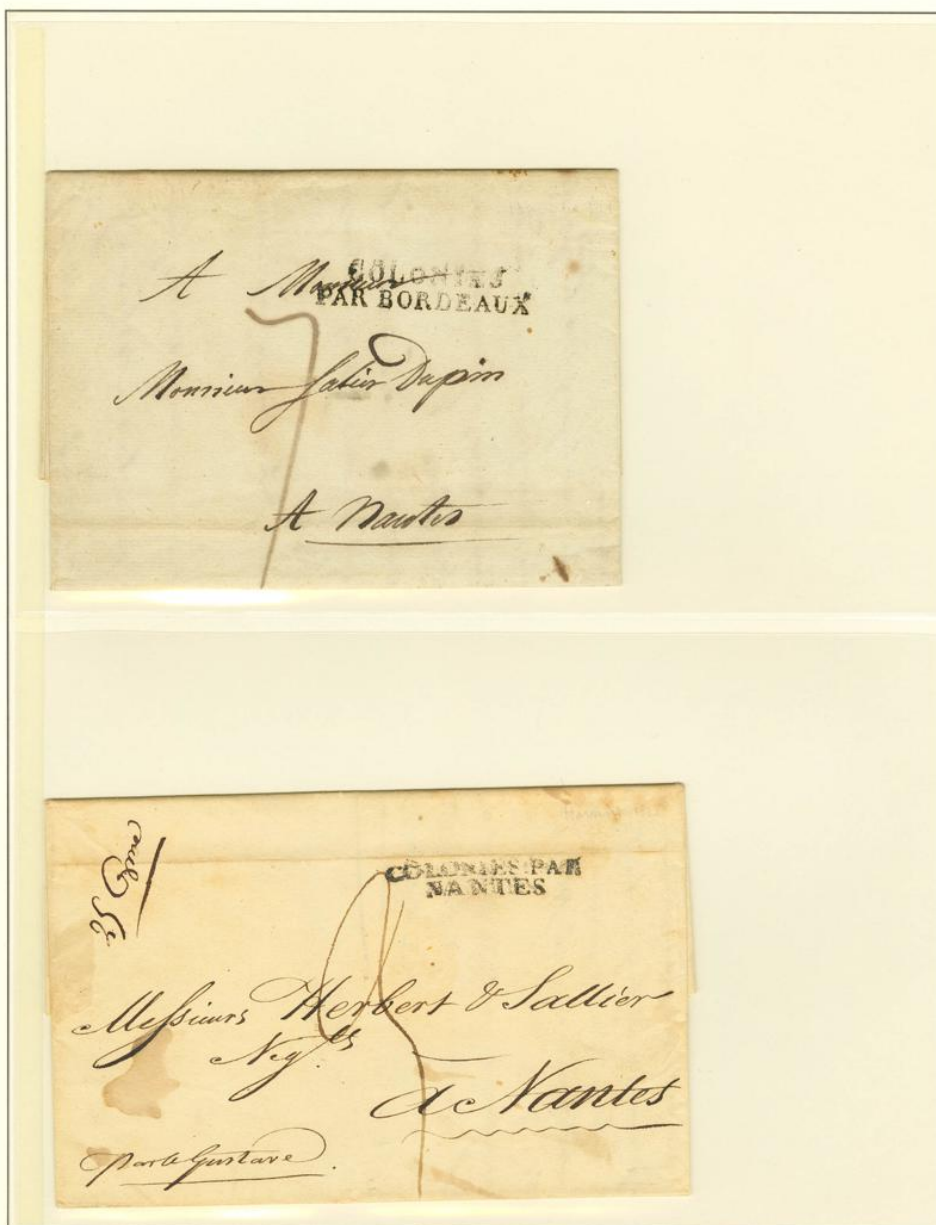 COLONIES
PAR BORDEAUX
A Monsieur
7
Monsieur Salier Dupin
A Nantes
COLONIES PAR
NANTES
Messieurs Herbert & Sallier
Neg.ts
a Nantes
par le Gustave